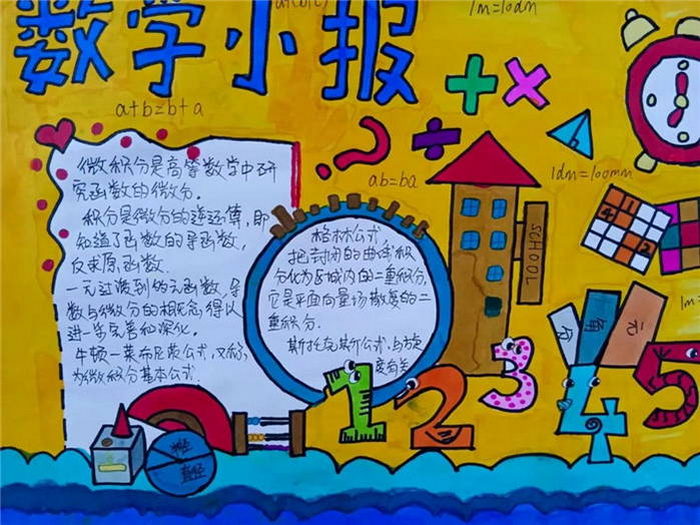 数学小报
a+b=b+a
1m=10dm
ab=ba
1dm=100mm
微积分是高等数学中研
究函数的微分.
积分是微分的逆运算,即
知道了函数的导函数,
反求原函数.
一元过渡到多元函数,导
数与微分的概念得以
进一步完善和深化.
牛顿一莱布尼茨公式,又称
为微积分基本公式.
格林公式
把封闭的曲线积
分化为区域内的二重积分,
它是平面向量场散度的二
重积分.
斯托克斯公式,与旋
度有关
SCHOOL
角
元
1m=
1
2
3
4
5
半径
直径